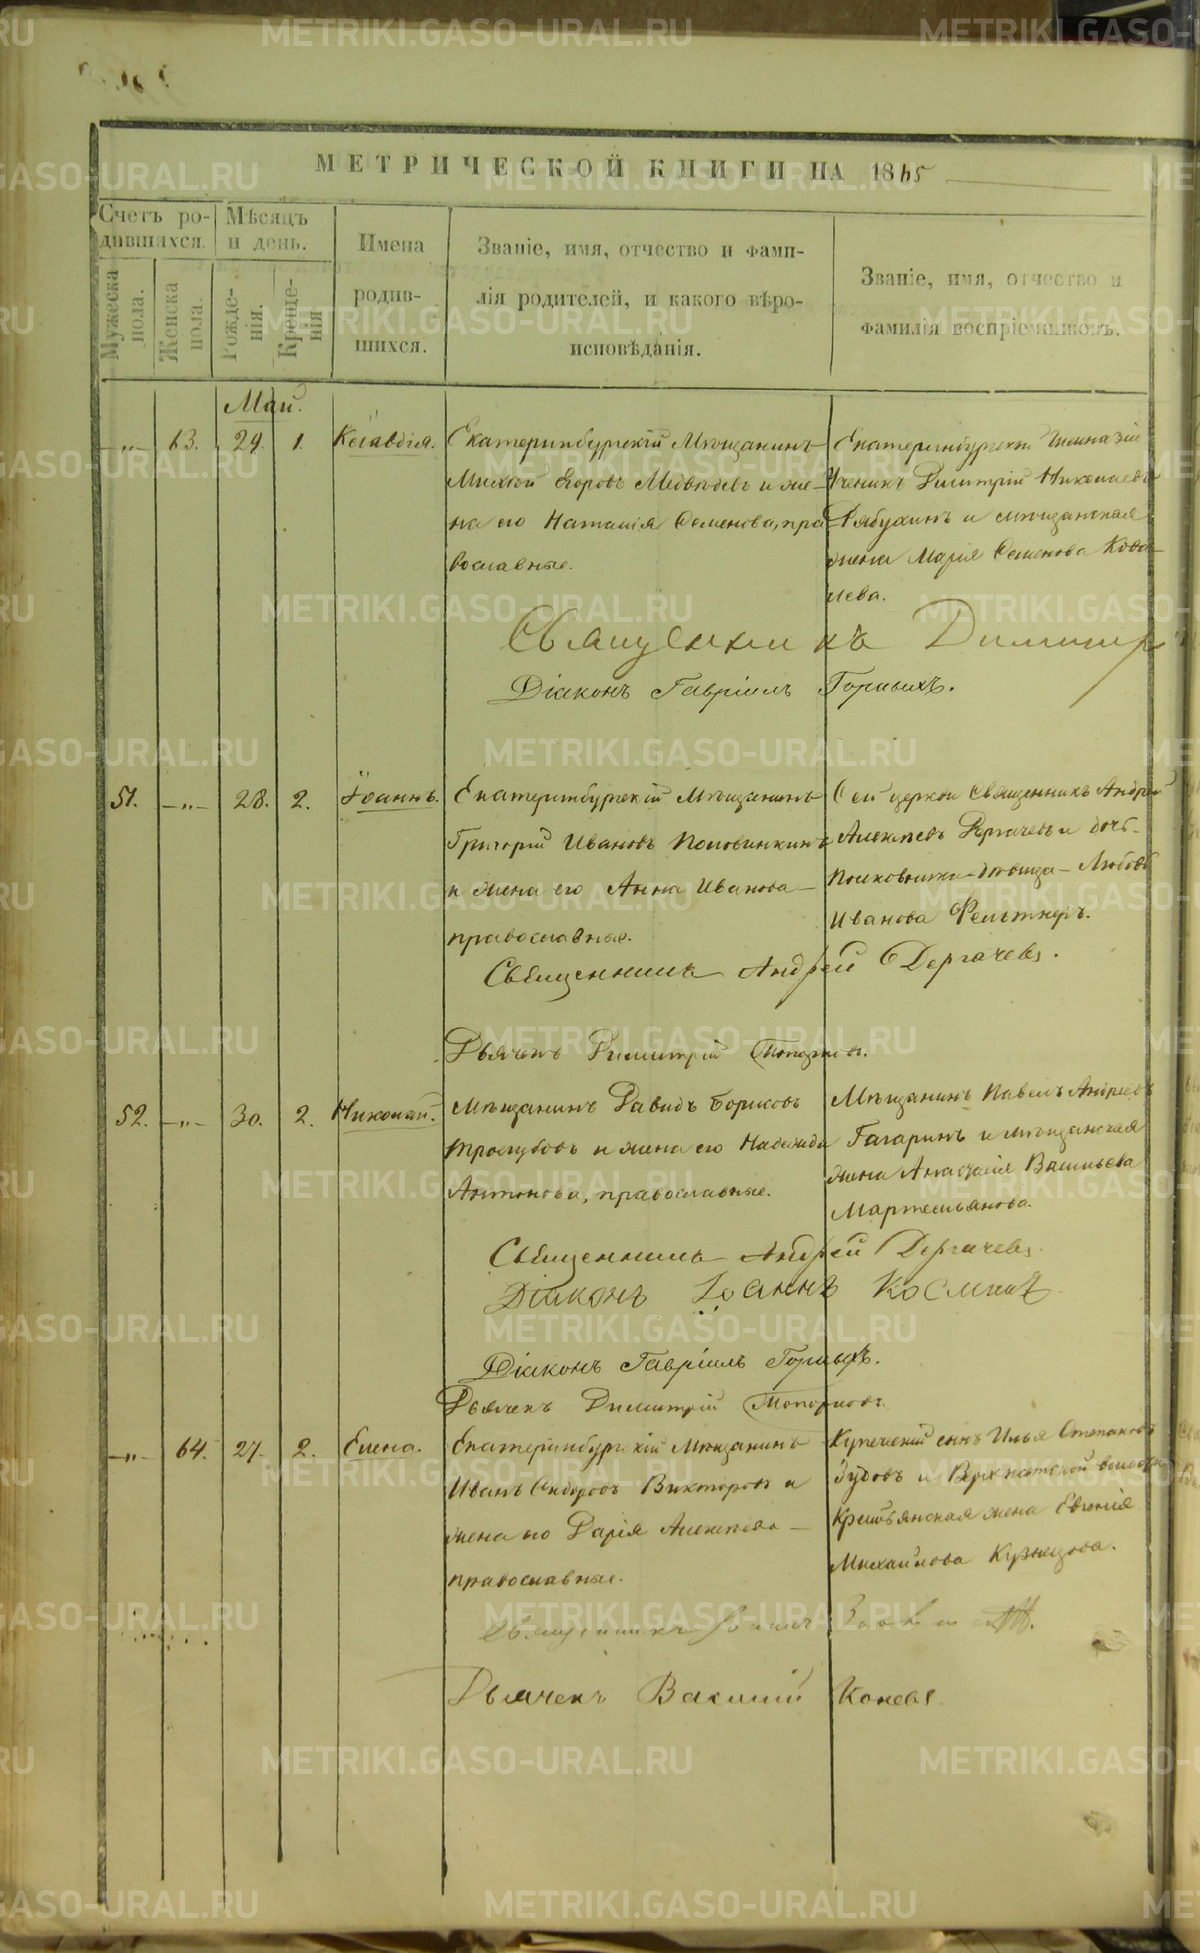 МЕТРИЧЕСКОЙ КНИГИ НА 1865
Счетъ ро-
дившихся.
Мѣсяцъ
и день.
Мужеска
пола.
Женска
пола.
Рожде-
нія.
Креще-
нія
Имена
родив-
шихся.
Званіе, имя, отчество и фами-
лія родителей, и какого вѣро-
исповѣданія.
Званіе, имя, отчество и
фамилія воспріемниковъ.
Май.
-„- 63. 29. 1. Клавдія.
Екатеринбургскій Мѣщанинъ
Егоровъ Медвѣдевъ и же-
на его Наталія Семенова, пра
вославные.
Екатеринбургской Гимназіи
Ученикъ Димитрій Николаевъ
Рябухинъ и мѣщанская
жена Марія Семенова Кова-
лева.
Священникъ Димитр
Діаконъ Гавріилъ Горныхъ.
51. -„- 28. 2. Іоаннъ.
Екатеринбургскій Мѣщанинъ
Григорій Ивановъ Половинкинъ
и жена его Анна Иванова —
православные.
Сей церкви Священникъ Андрей
Алексѣевъ Дергачевъ и дочь
Полковника дѣвица — Любовь
Иванова Фельтнеръ.
Священникъ Андрей Дергачевъ.
Дьячекъ Димитрій Топорковъ.
52. -„- 30. 2. Николай.
Мѣщанинъ Давидъ Борисовъ
Трегубовъ и жена его Надежда
Антонова, православные.
Мѣщанинъ Павелъ Андреевъ
Гагаринъ и мѣщанская
жена Анастасія Васильева
Мартемьянова.
Священникъ Андрей Дергачевъ.
Діаконъ Іоаннъ
Діаконъ Гавріилъ Горныхъ.
Дьячекъ Димитрій Топорковъ.
-„- 64. 27. 2. Елена.
Екатеринбургскій Мѣщанинъ
Иванъ Сидоровъ Викторовъ и
жена его Дарія Алексѣева —
православные.
Купеческій сынъ Илья Степановъ
Зудовъ и волости
Крестьянская жена Евгенія
Михайлова Кузнецова.
Священникъ
Дьячекъ Василій Коневъ.
METRIKI.GASO-URAL.RU